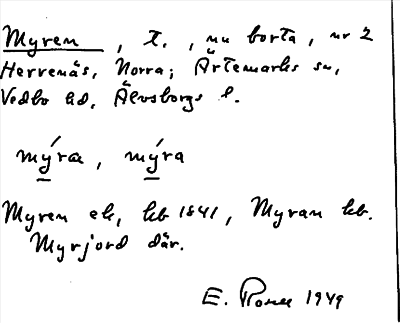 Myren, t., nu borta, nr 2
Herrenäs, Norra; Ärtemarks sn,
Vedbo hd, Älvsborgs l.
mýræ, mýra
Myren ek, kb 1841, Myran kb.
Myrjord där.
E. 1949